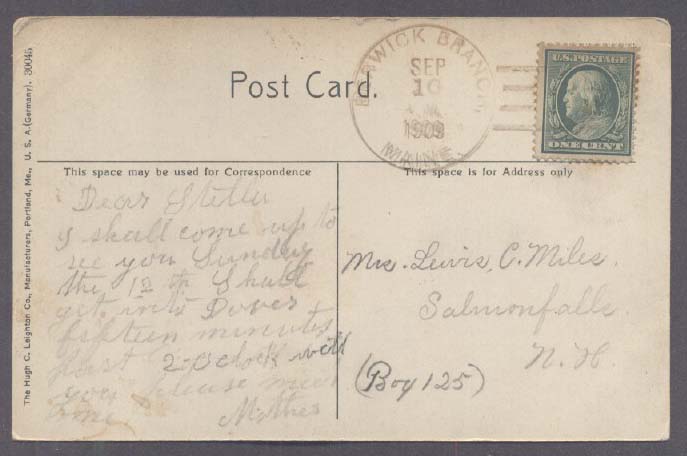 Post Card.
BERWICK BRANCH
SEP
10
1909
MAINE
U.S. POSTAGE
ONE CENT
The Hugh C. Leighton Co., Manufacturers, Portland, Me., U. S. A. (Germany). 30045
This space may be used for Correspondence
This space is for Address only
Dear Stella
I shall come up to
see you Sunday
the 12th Shall
get into Dover
fifteen minutes
past 2-oclock will
you please meet
me. Mother
Mrs. Lewis, C. Miles.
Salmonfalls.
N. H.
(Boy 125)